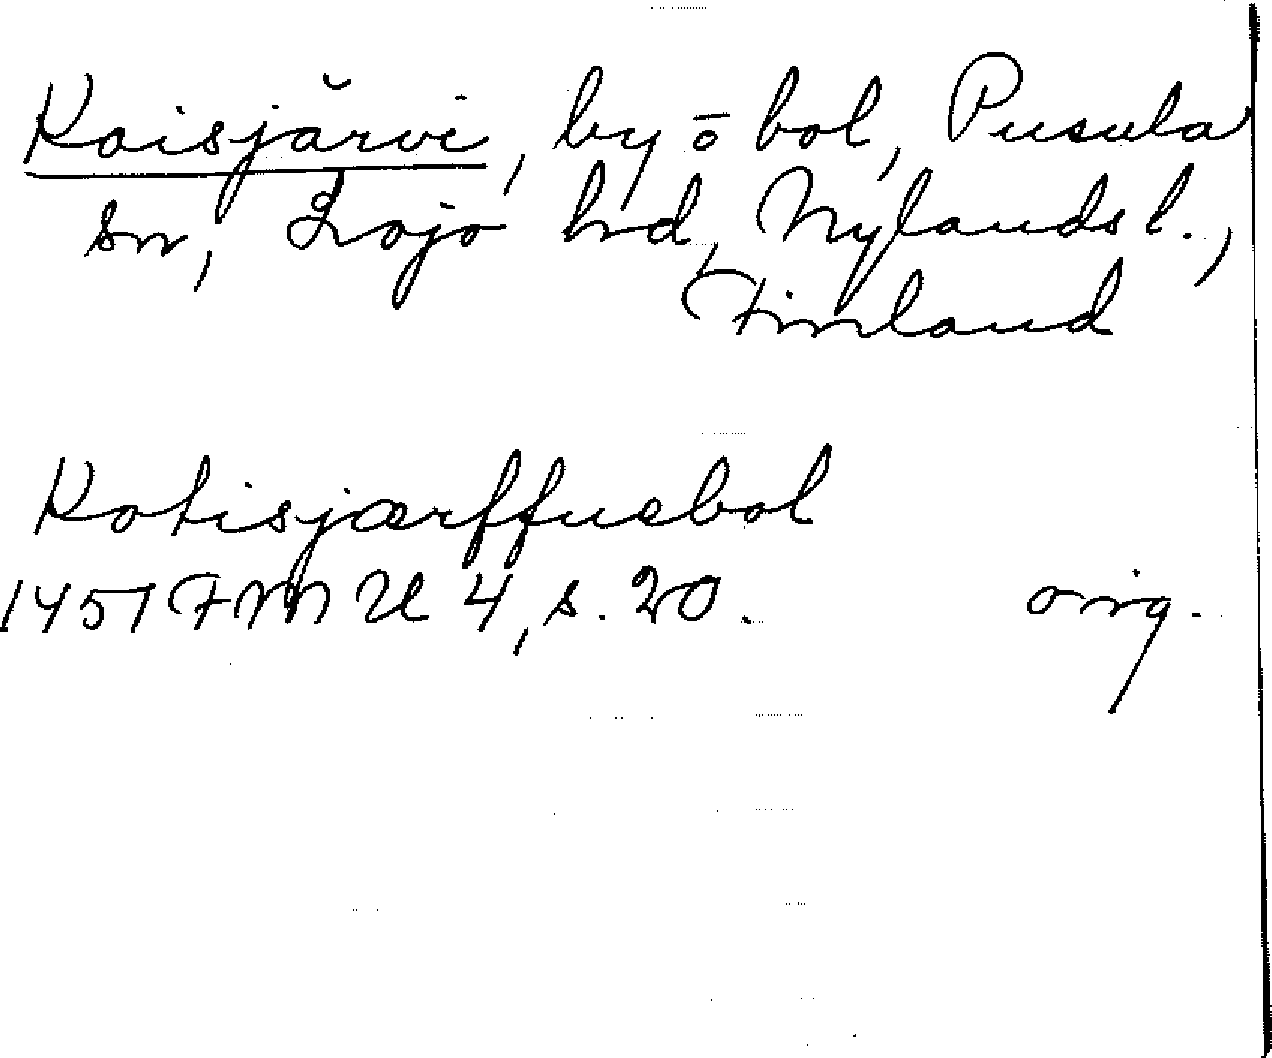 Koisjärvi, by o bol, Pusula
sn, Lojo hrd, Nylands l.,
Finland
Kotisjærffuebol
1451 FMU 4, s. 20. orig.